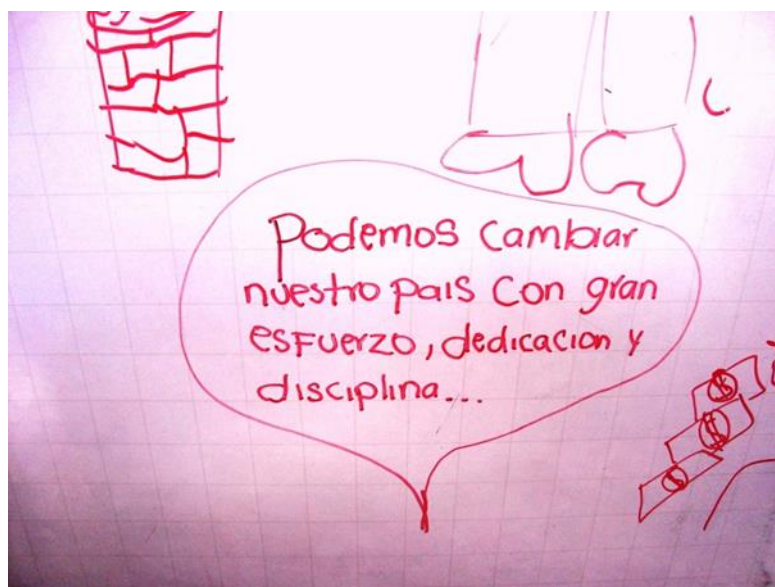 Podemos cambiar
nuestro pais con gran
esfuerzo, dedicacion y
disciplina...
$
$
$